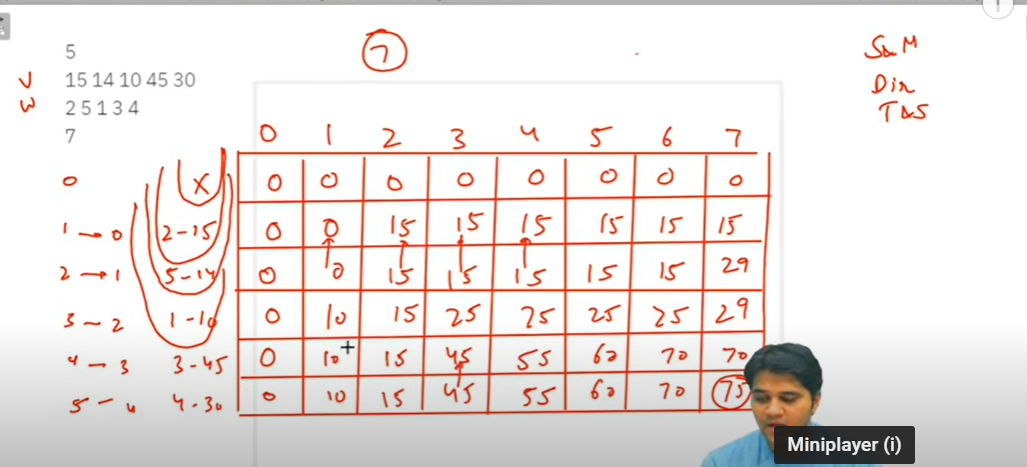 5
15 14 10 45 30
2 5 1 3 4
7
V
W
7
0 1 2 3 4 5 6 7
0 X 0 0 0 0 0 0 0 0
1 → 0 2-15 0 0 15 15 15 15 15 15
2 → 1 5-14 0 0 15 15 15 15 15 29
3 - 2 1-10 0 10 15 25 25 25 25 29
4 - 3 3-45 0 10 15 45 55 60 70 70
5 - 4 4-30 0 10 15 45 55 60 70 75
Miniplayer (i)